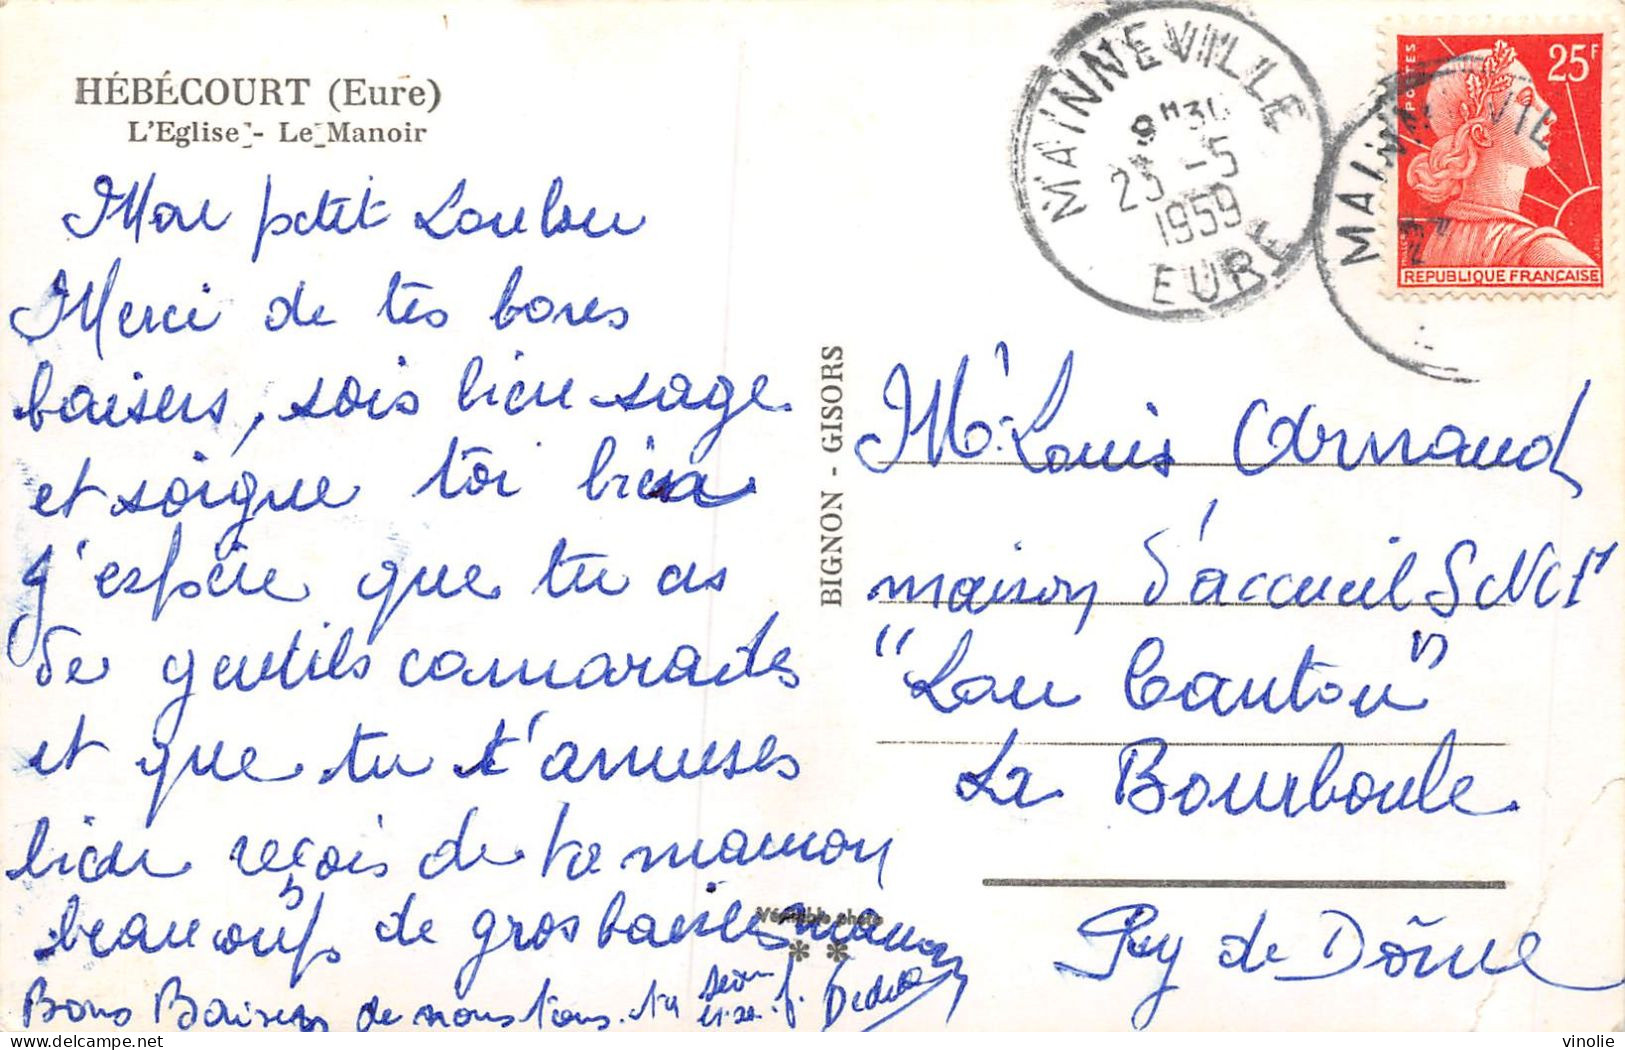 HÉBÉCOURT (Eure)
L'Eglise - Le Manoir
Mon petit Loulou
Merci de tes bons
baisers, sois bien sage
et soigne toi bien
J'espère que tu as
de gentils camarades
et que tu t'amuses
bien reçois de ta maman
beaucoups de gros baisers maman
Bons Baisers de nous tous. ta
Véritable photo
BIGNON - GISORS
MAINNEVILLE
9H30
23 -5
1959
EURE
POSTES
25F
REPUBLIQUE FRANÇAISE
Mr Louis Arnaud
maison d'accueil SNCF
"Lou Cantou"
La Bourboule
Puy de Dôme
vinolie